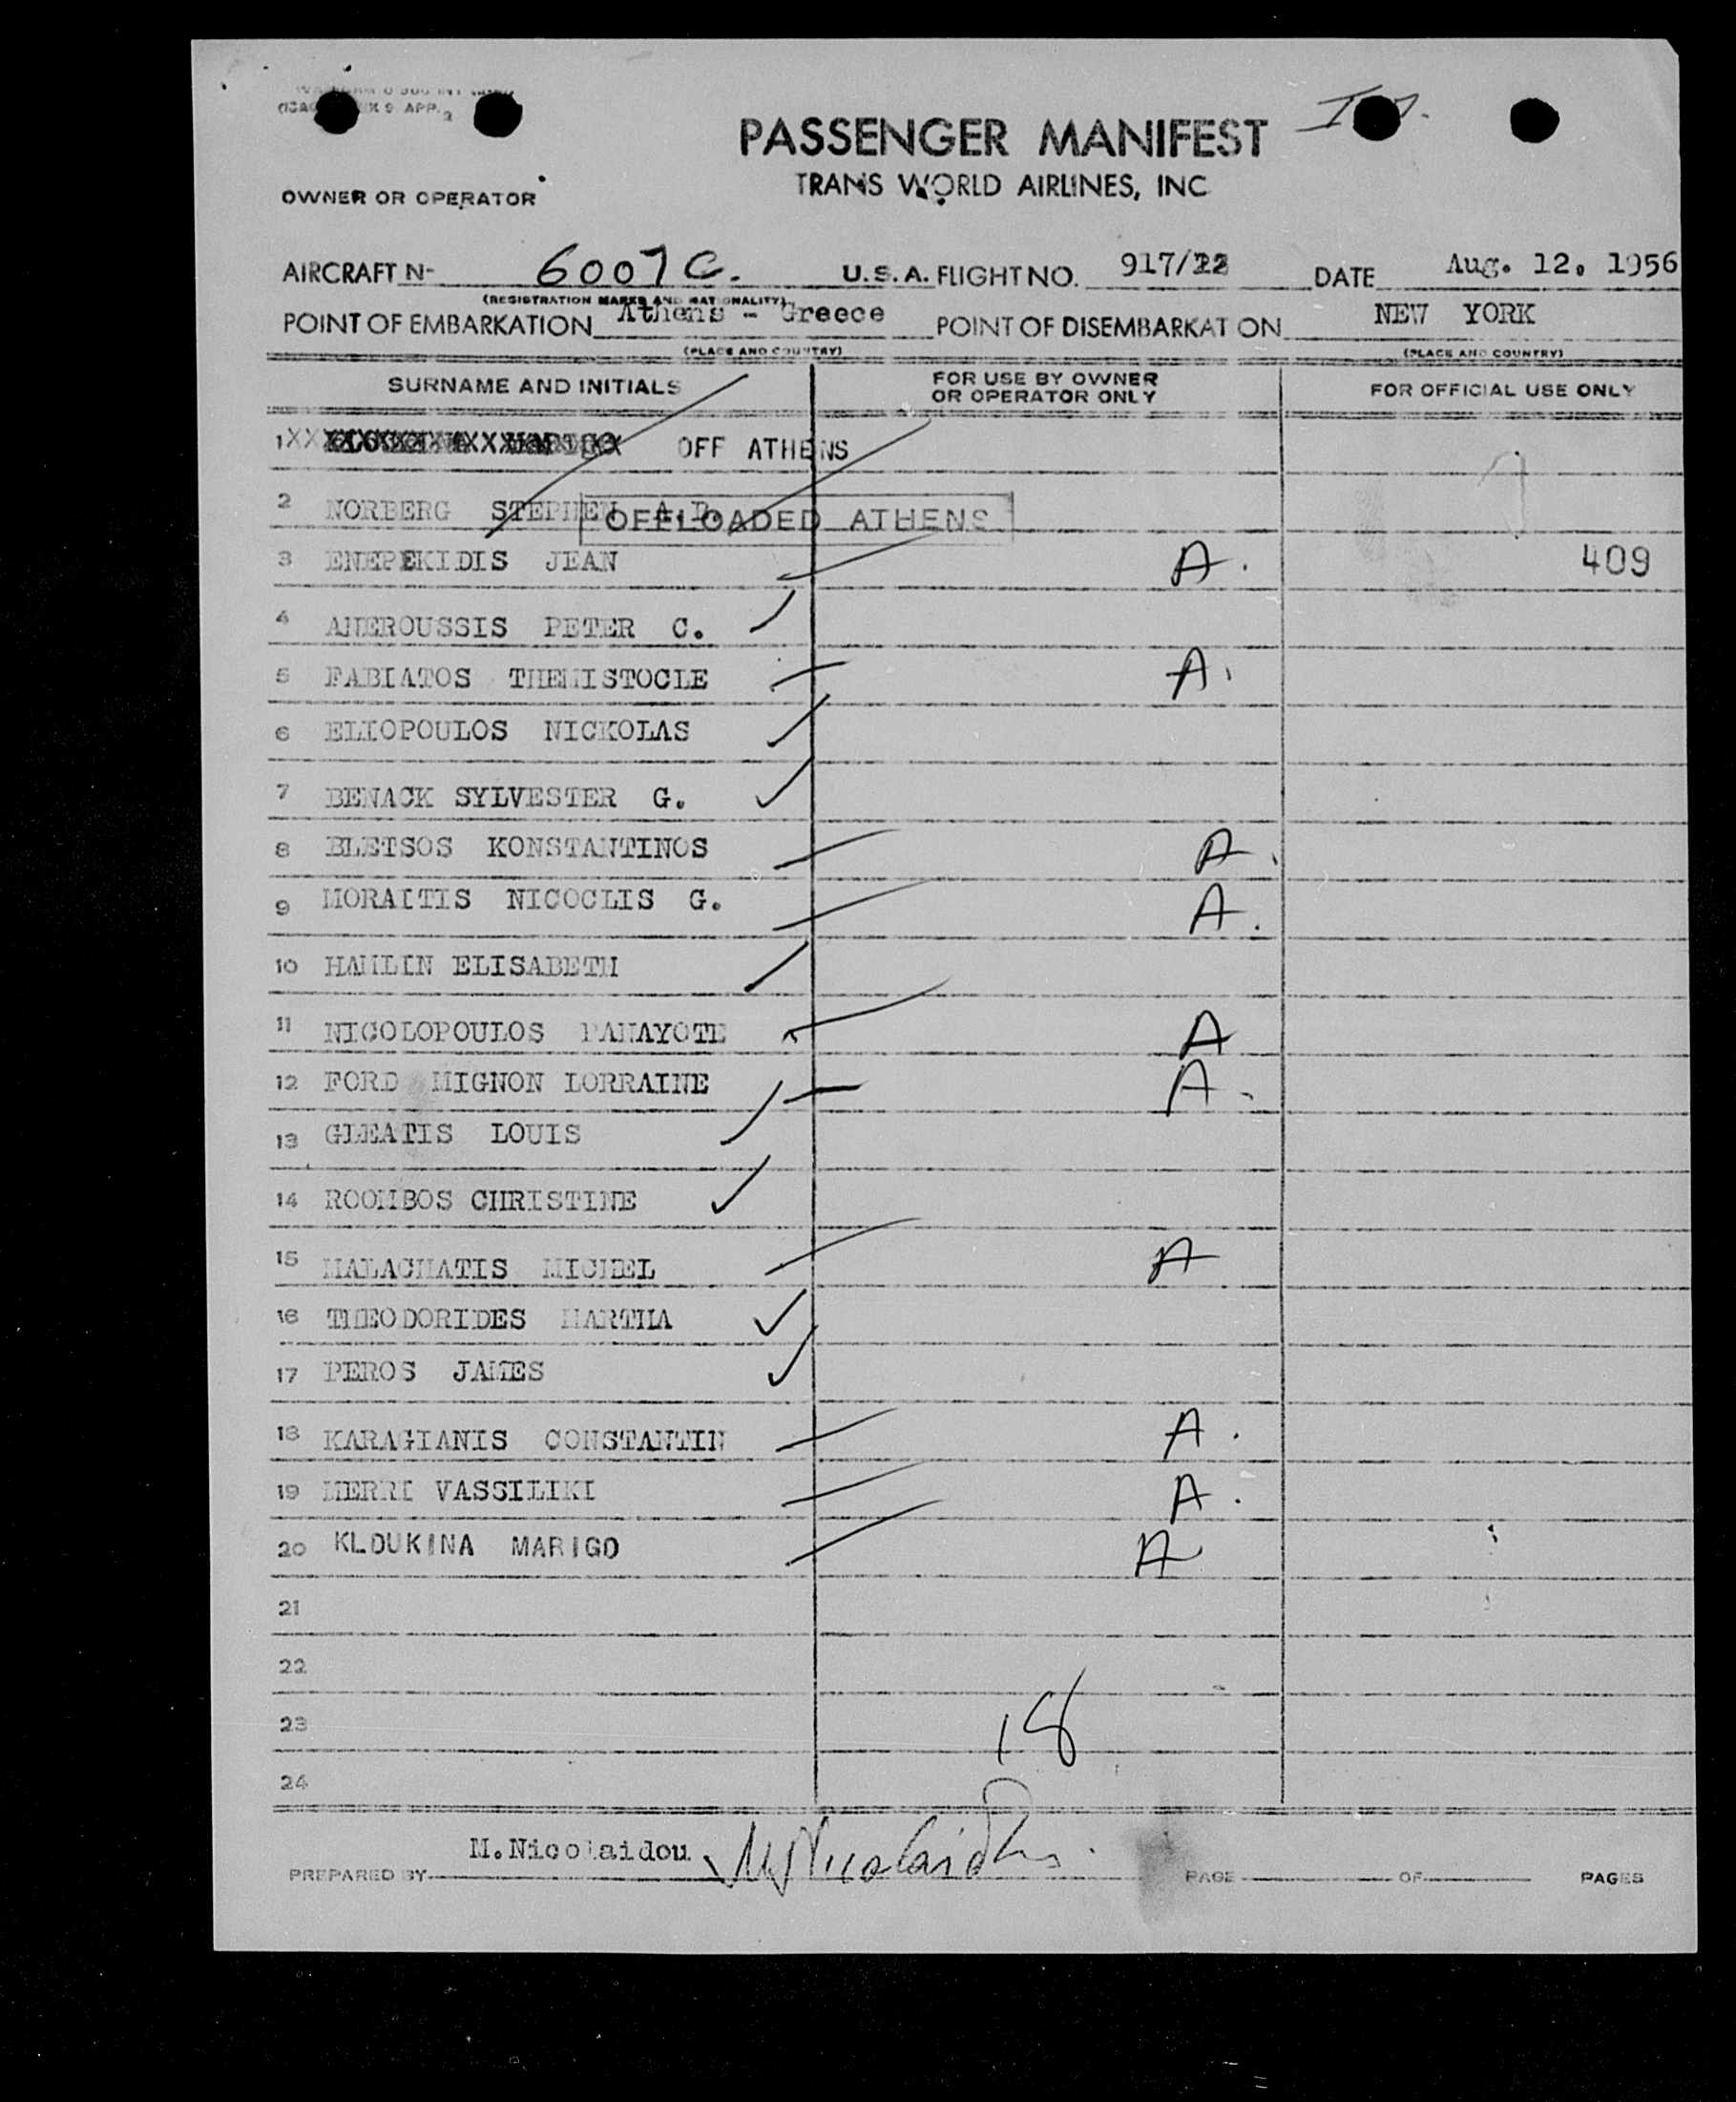 PASSENGER MANIFEST
TRANS WORLD AIRLINES, INC
OWNER OR OPERATOR
AIRCRAFT N- 6007C. U.S.A. FLIGHT NO. 917/22 DATE Aug. 12. 1956
(REGISTRATION MARKS AND NATIONALITY)
POINT OF EMBARKATION Athens - Greece POINT OF DISEMBARKATION NEW YORK
(PLACE AND COUNTRY) (PLACE AND COUNTRY)
SURNAME AND INITIALS FOR USE BY OWNER OR OPERATOR ONLY FOR OFFICIAL USE ONLY
1 OFF ATHENS
2 NORBERG STEPHEN OFFLOADED ATHENS
3 ENEPEKIDIS JEAN A. 409
4 ANEROUSSIS PETER C.
5 FABIATOS THEMISTOCLE A.
6 ELIOPOULOS NICKOLAS
7 BENACK SYLVESTER G.
8 BLETSOS KONSTANTINOS A.
9 MORAITIS NICOCLIS G. A.
10 HAMLIN ELISABETH
11 NICOLOPOULOS PANAYOTE A
12 FORD MIGNON LORRAINE A.
13 GLEATIS LOUIS
14 ROOMBOS CHRISTINE
15 MALACHATIS MICHEL A
16 THEODORIDES MARTHA
17 PEROS JAMES
18 KARAGIANIS CONSTANTIN A.
19 MERRI VASSILIKI A.
20 KLOUKINA MARIGO A
21
22
23 18
24
PREPARED BY M.Nicolaidou PAGE OF PAGES